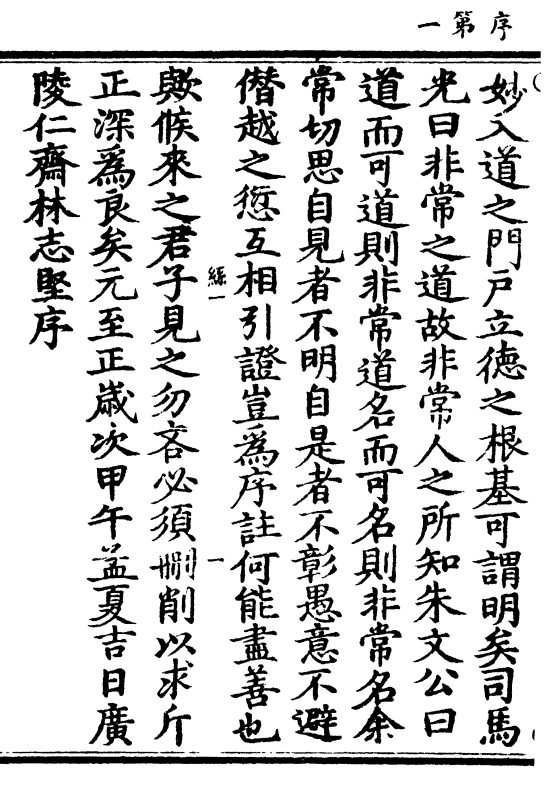 序第一
妙入道之門戶立德之根基可謂明矣司馬
光曰非常之道故非常人之所知朱文公曰
道而可道則非常道名而可名則非常名余
常切思自見者不明自是者不彰愚意不避
僣越之愆互相引證豈為序註何能盡善也
歟候來之君子見之勿吝必須刪削以求斤
正深為良矣元至正歲次甲午孟夏吉日廣
陵仁齋林志堅序
絲一
一